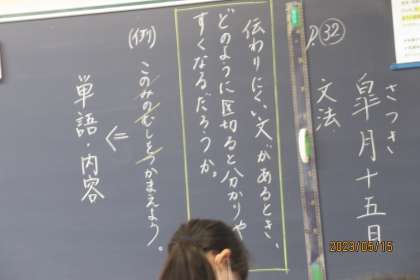 さつき
皐月十五日
P.㉜
文法
伝わりにくい文があるとき、
どのように区切ると分かりや
すくなるだろうか。
(例)
このみのむしをつかまえよう。
⇐
単語・内容
2023/05/15